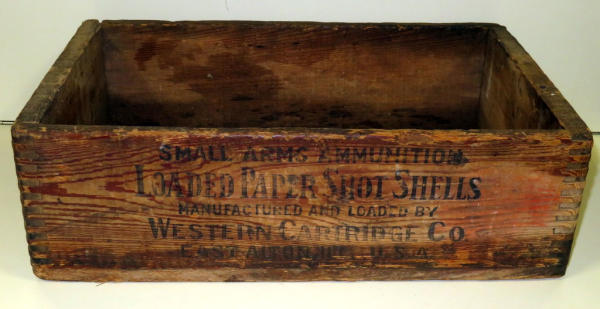 SMALL ARMS AMMUNITION
LOADED PAPER SHOT SHELLS
MANUFACTURED AND LOADED BY
WESTERN CARTRIDGE CO.
EAST ALTON, ILL. U.S.A.